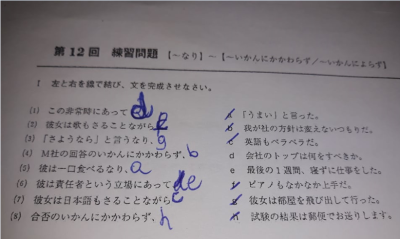 第12回 練習問題 【〜なり】〜【〜いかんにかかわらず/〜いかんによらず】
I 左と右を線で結び、文を完成させなさい。
(1) この非常時にあって d
(2) 彼女は歌もさることながら
(3) 「さようなら」と言うなり、g
(4) M社の回答のいかんにかかわらず、b
(5) 彼は一口食べるなり、a
(6) 彼は責任者という立場にあって e
(7) 彼女は日本語もさることながら c
(8) 合否のいかんにかかわらず、h
a 「うまい」と言った。
b 我が社の方針は変えないつもりだ。
c 英語もペラペラだ。
d 会社のトップは何をすべきか。
e 最後の1週間、寝ずに仕事をした。
f ピアノもなかなか上手だ。
g 彼女は部屋を飛び出して行った。
h 試験の結果は郵便でお送りします。